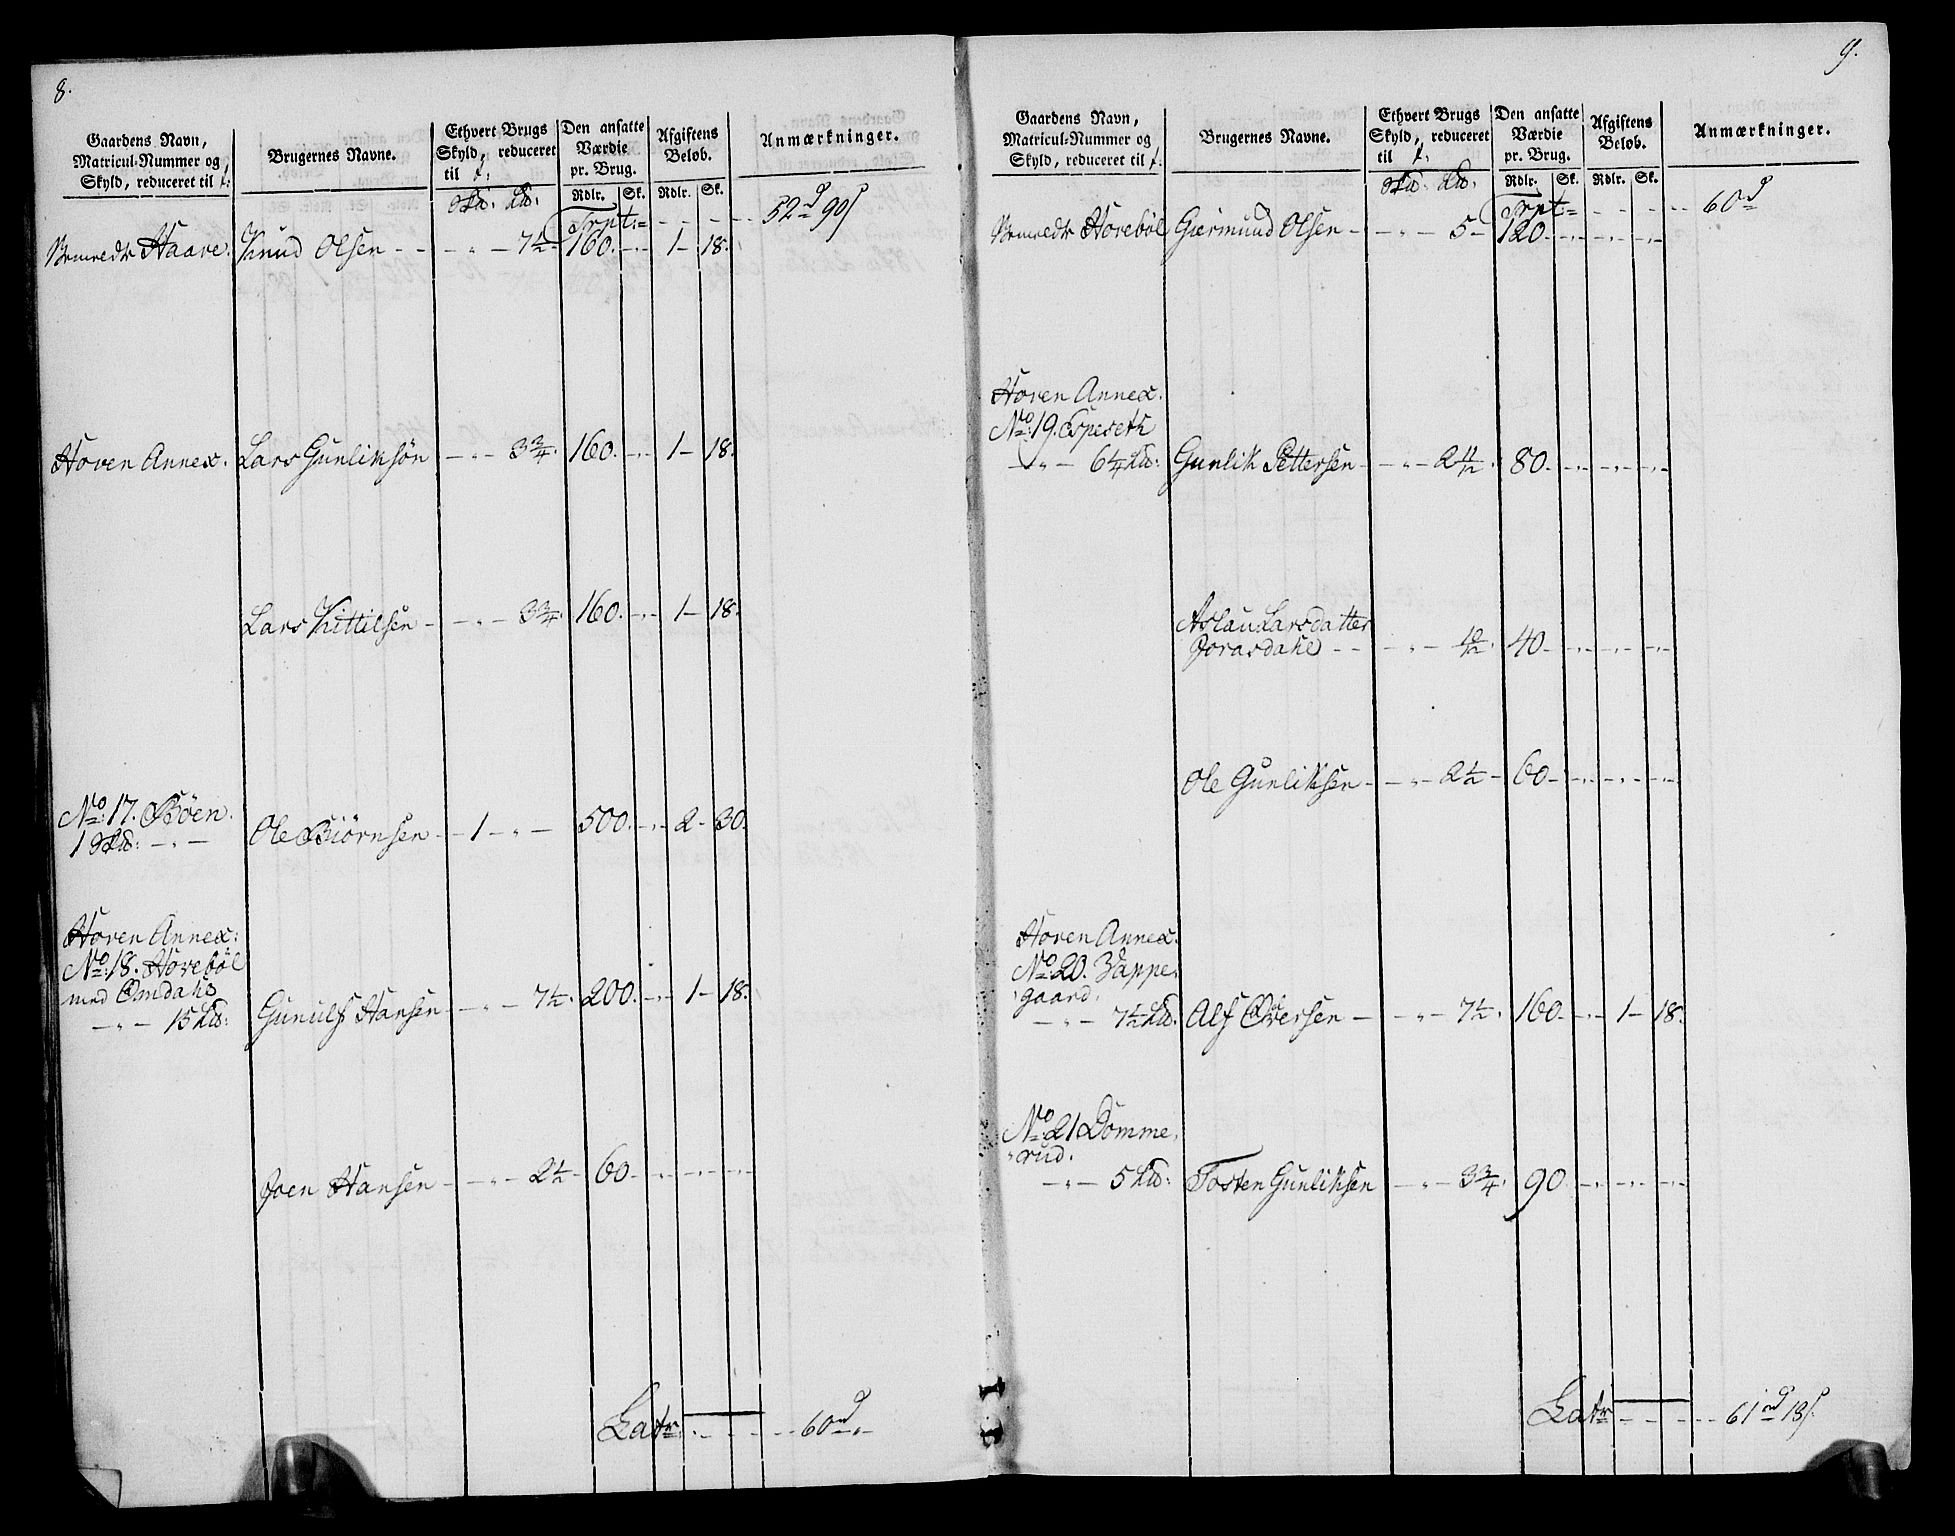 8.
Gaardens Navn,
Matricul-Nummer og
Skyld, reduceret til
Brugernes Navne.
Ethvert Brugs
Skyld, reduceret
til
Den ansatte
Værdie
pr. Brug.
Rdlr. Sk.
Afgiftens
Beløb.
Rdlr. Sk.
Anmærkninger.
Skd. Ld.
Trpt= - - - - 52 d 90 s
Haave. Knud Olsen - - - " - 7½ - 160. - " - 1 - 18.
Hoven Annex. Lars Gunliksøn - " - 3¾. 160. - " - 1 - 18.
Lars Kittilsen - - " - 3¾. 160. - " - 1 - 18.
No. 17. Bøen.
1 Skd: - " - Ole Biörnsen - - 1 - " - 500. - " - 2 - 30.
Hoven Annex:
No. 18. Hovebøl
med Omdahs
- " - 15 Ld: Gunulf Hansen - " - 7½. 200. - " - 1 - 18.
Joen Hansen - - " - 2½ - 60 - " - " - " -
Latr - - - - 60 rd " -
9.
Gaardens Navn,
Matricul-Nummer og
Skyld, reduceret til
Brugernes Navne.
Ethvert Brugs
Skyld, reduceret
til
Den ansatte
Værdie
pr. Brug.
Rdlr. Sk.
Afgiftens
Beløb.
Rdlr. Sk.
Anmærkninger.
Skd. Ld.
Trpt= - - - - 60 d
Hovebøl Giermund Olsen - - " - 5 - 120 - " - " - " -
Hoven Annex.
No. 19. Espeseth
- " - 6¼ Ld: Gunlik Pettersen - - " - 2 11/12. 80 - " - " - " -
Aslau Larsdatter
Jorasdahl - - - " - 10/12. 40 - " - " - " -
Ole Gunliksen - - " - 2½ - 60 - " - " - " -
Hoven Annex.
No. 20. Zappe,
gaard,
- " - 7½ Ld: Alf Olversen - - " - 7½. 160 - " - 1 - 18.
No. 21 Domme,
rud.
- " - 5 Ld: Tosten Gunliksen - " - 3¾. 90 - " - " - " -
Latr - - - - 61 rd 18 s.